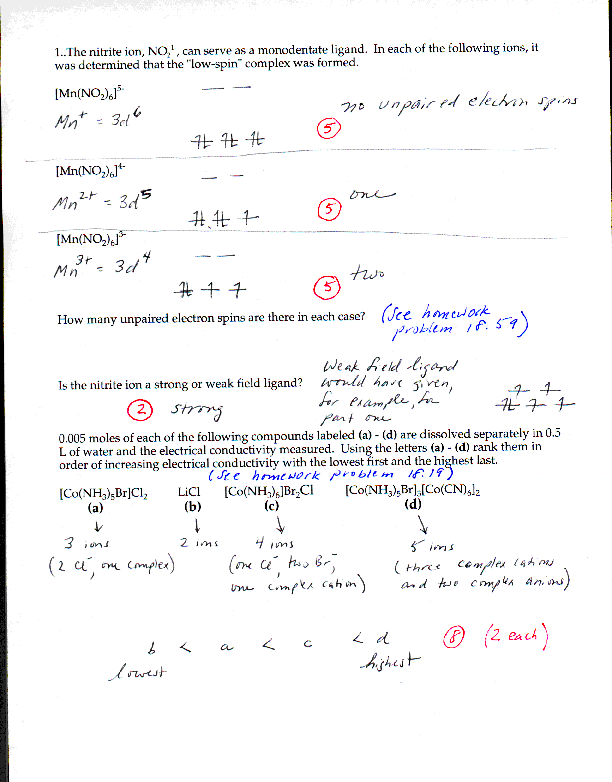 1..The nitrite ion, NO₂¹, can serve as a monodentate ligand. In each of the following ions, it
was determined that the "low-spin" complex was formed.
[Mn(NO₂)₆]⁵⁻
Mn⁺ = 3d⁶
no unpaired electron spins
5
[Mn(NO₂)₆]⁴⁻
Mn²⁺ = 3d⁵
one
5
[Mn(NO₂)₆]³⁻
Mn³⁺ = 3d⁴
two
5
How many unpaired electron spins are there in each case?
(See homework
problem 18.59)
Is the nitrite ion a strong or weak field ligand?
2 strong
Weak field ligand
would have given,
for example, for
part one
0.005 moles of each of the following compounds labeled (a) - (d) are dissolved separately in 0.5
L of water and the electrical conductivity measured. Using the letters (a) - (d) rank them in
order of increasing electrical conductivity with the lowest first and the highest last.
(See homework problem 18.19)
[Co(NH₃)₅Br]Cl₂ LiCl [Co(NH₃)₆]Br₂Cl [Co(NH₃)₅Br]₃[Co(CN)₆]₂
(a) (b) (c) (d)
3 ions 2 ions 4 ions 5 ions
(2 Cl⁻, one complex) (one Cl⁻, two Br⁻, (three complex cations
one complex cation) and two complex anions)
b < a < c < d 8 (2 each)
lowest highest